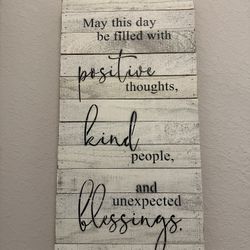 May this day
be filled with
positive
thoughts,
kind
people,
and
unexpected
blessings.